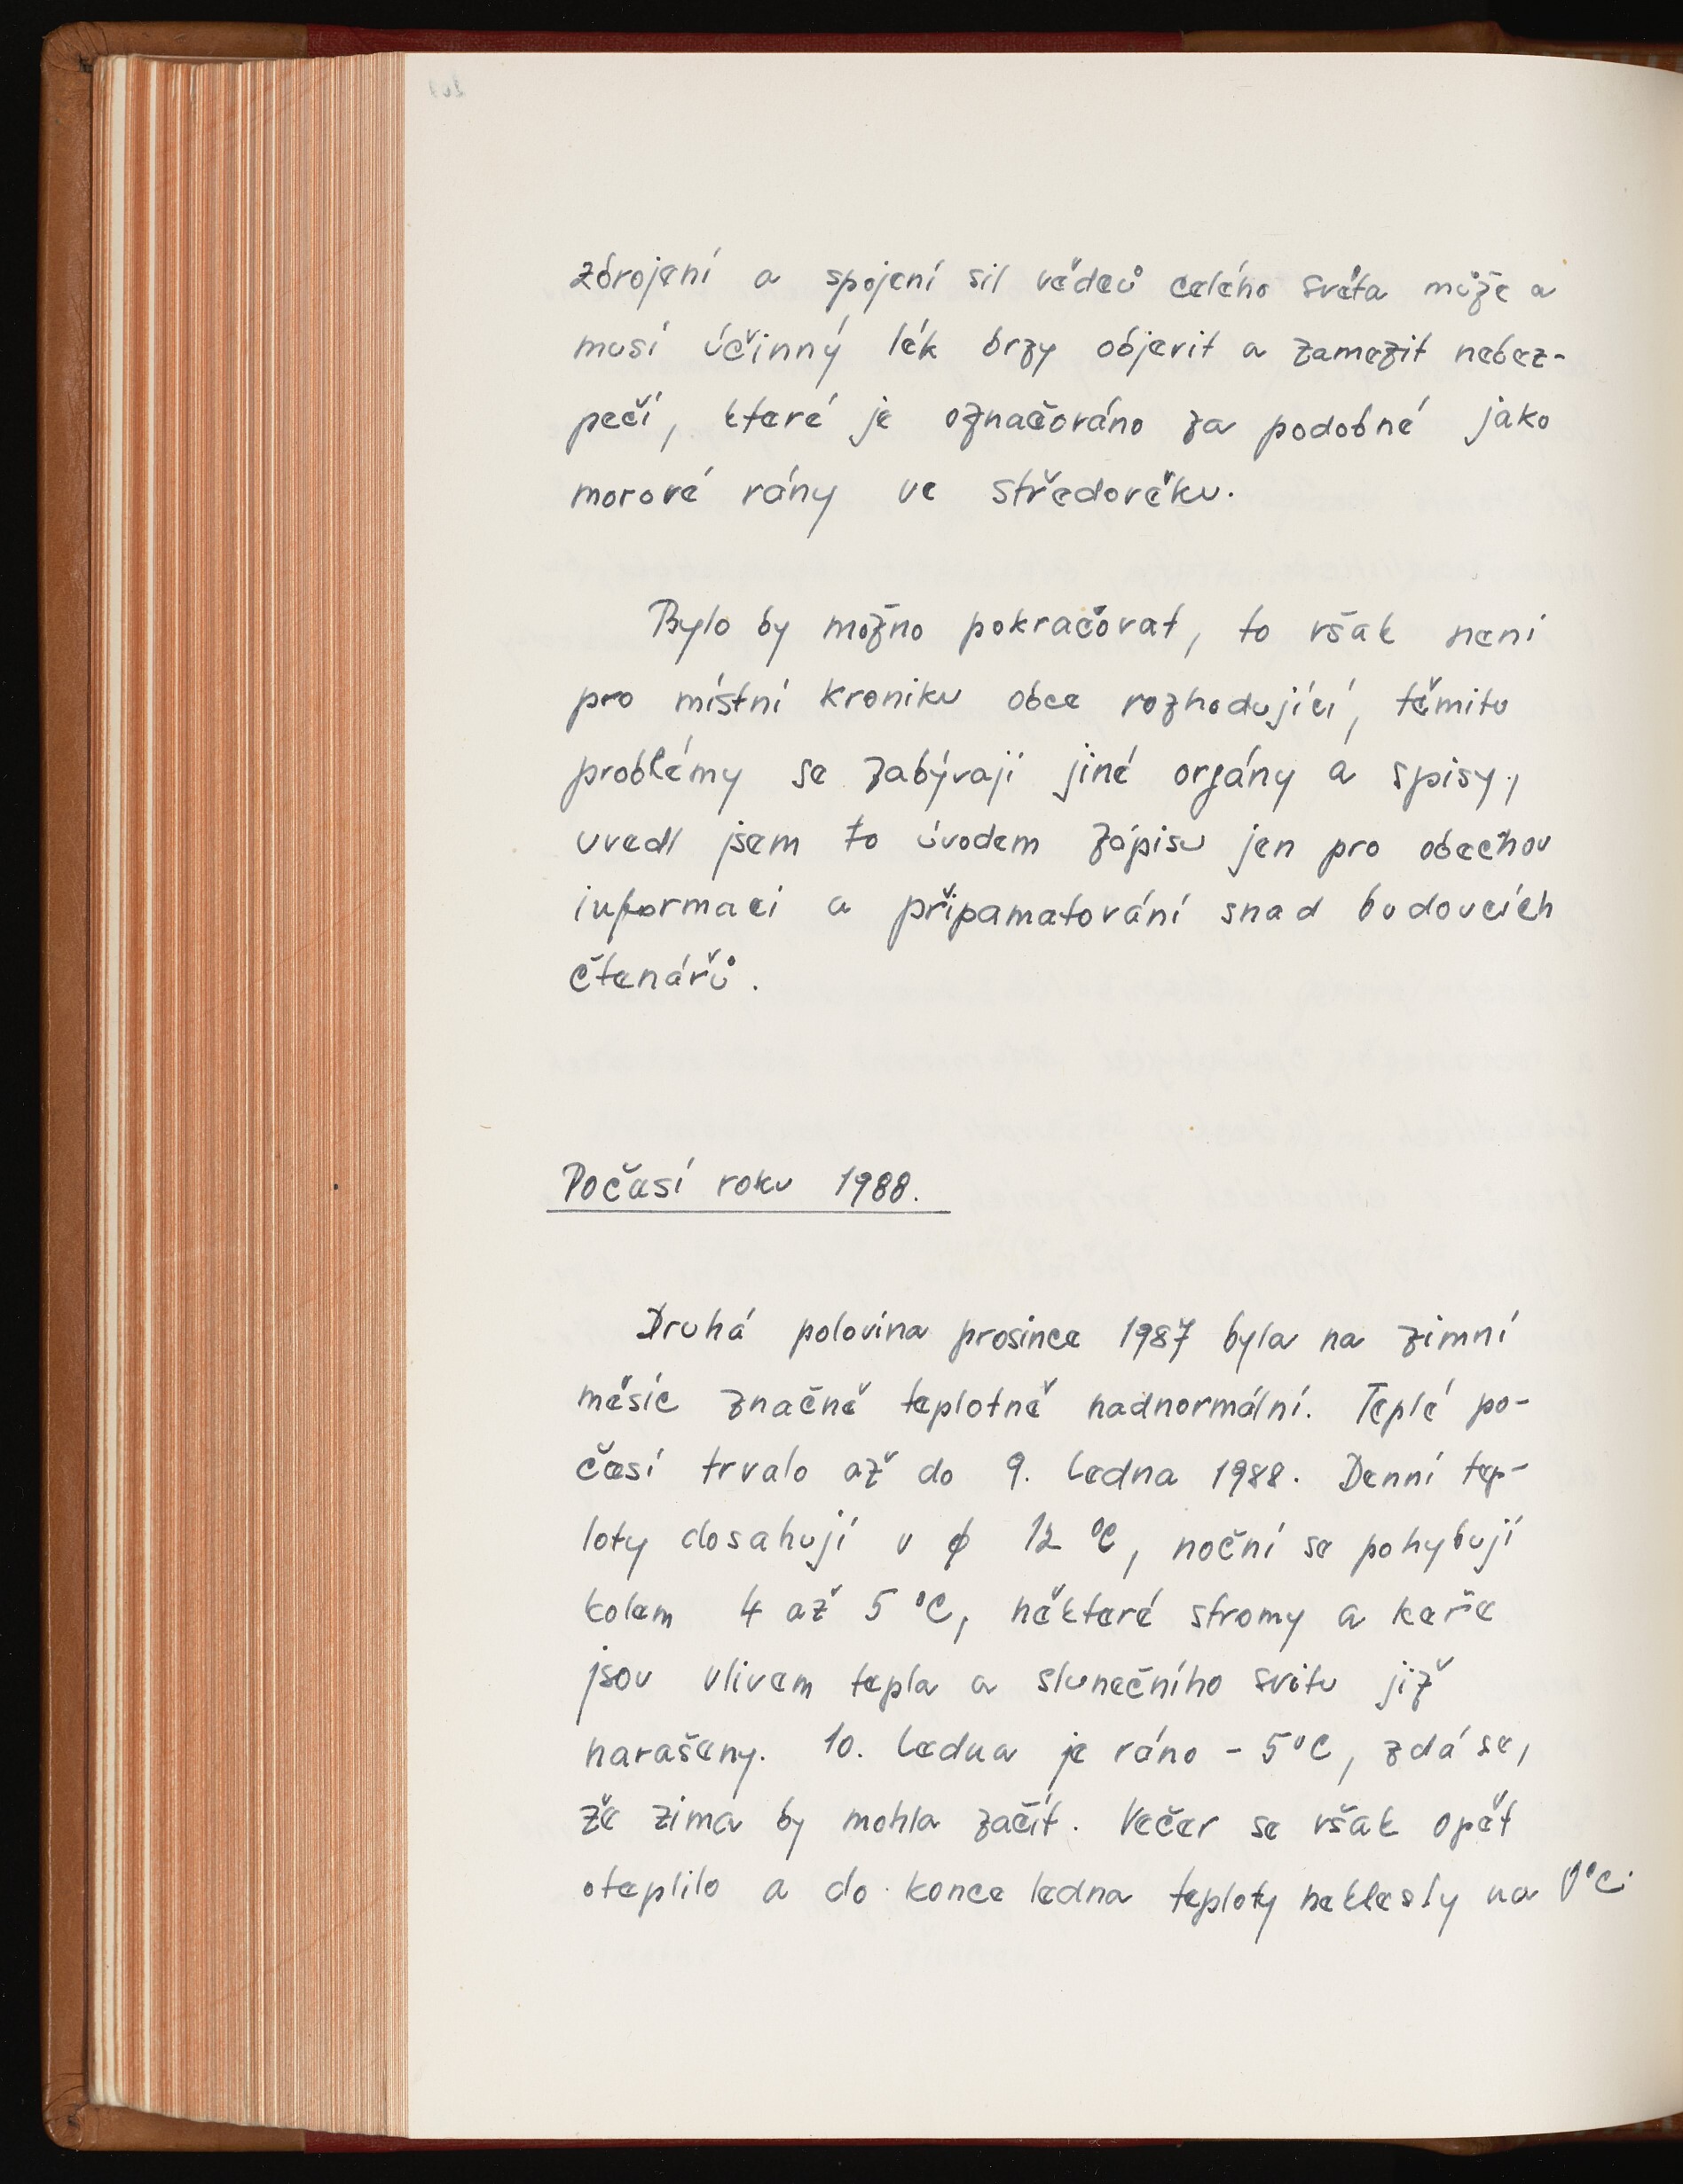 zbrojení a spojení sil vědců celého světa může a
musí účinný lék brzy objevit a zamezit nebez-
pečí, které je označováno za podobné jako
morové rány ve středověku.
Bylo by možno pokračovat, to však není
pro místní kroniku obce rozhodující, těmito
problémy se zabývají jiné orgány a spisy,
uvedl jsem to úvodem zápisu jen pro obecnou
informaci a připamatování snad budoucích
čtenářů.
Počasí roku 1988.
Druhá polovina prosince 1987 byla na zimní
měsíc značně teplotně nadnormální. Teplé po-
časí trvalo až do 9. ledna 1988. Denní tep-
loty dosahují v ϕ 12 °C, noční se pohybují
kolem 4 až 5 °C, některé stromy a keře
jsou vlivem tepla a slunečního svitu již
narašeny. 10. ledna je ráno - 5°C, zdá se,
že zima by mohla začít. Večer se však opět
oteplilo a do konce ledna teploty neklesly na 0°C.